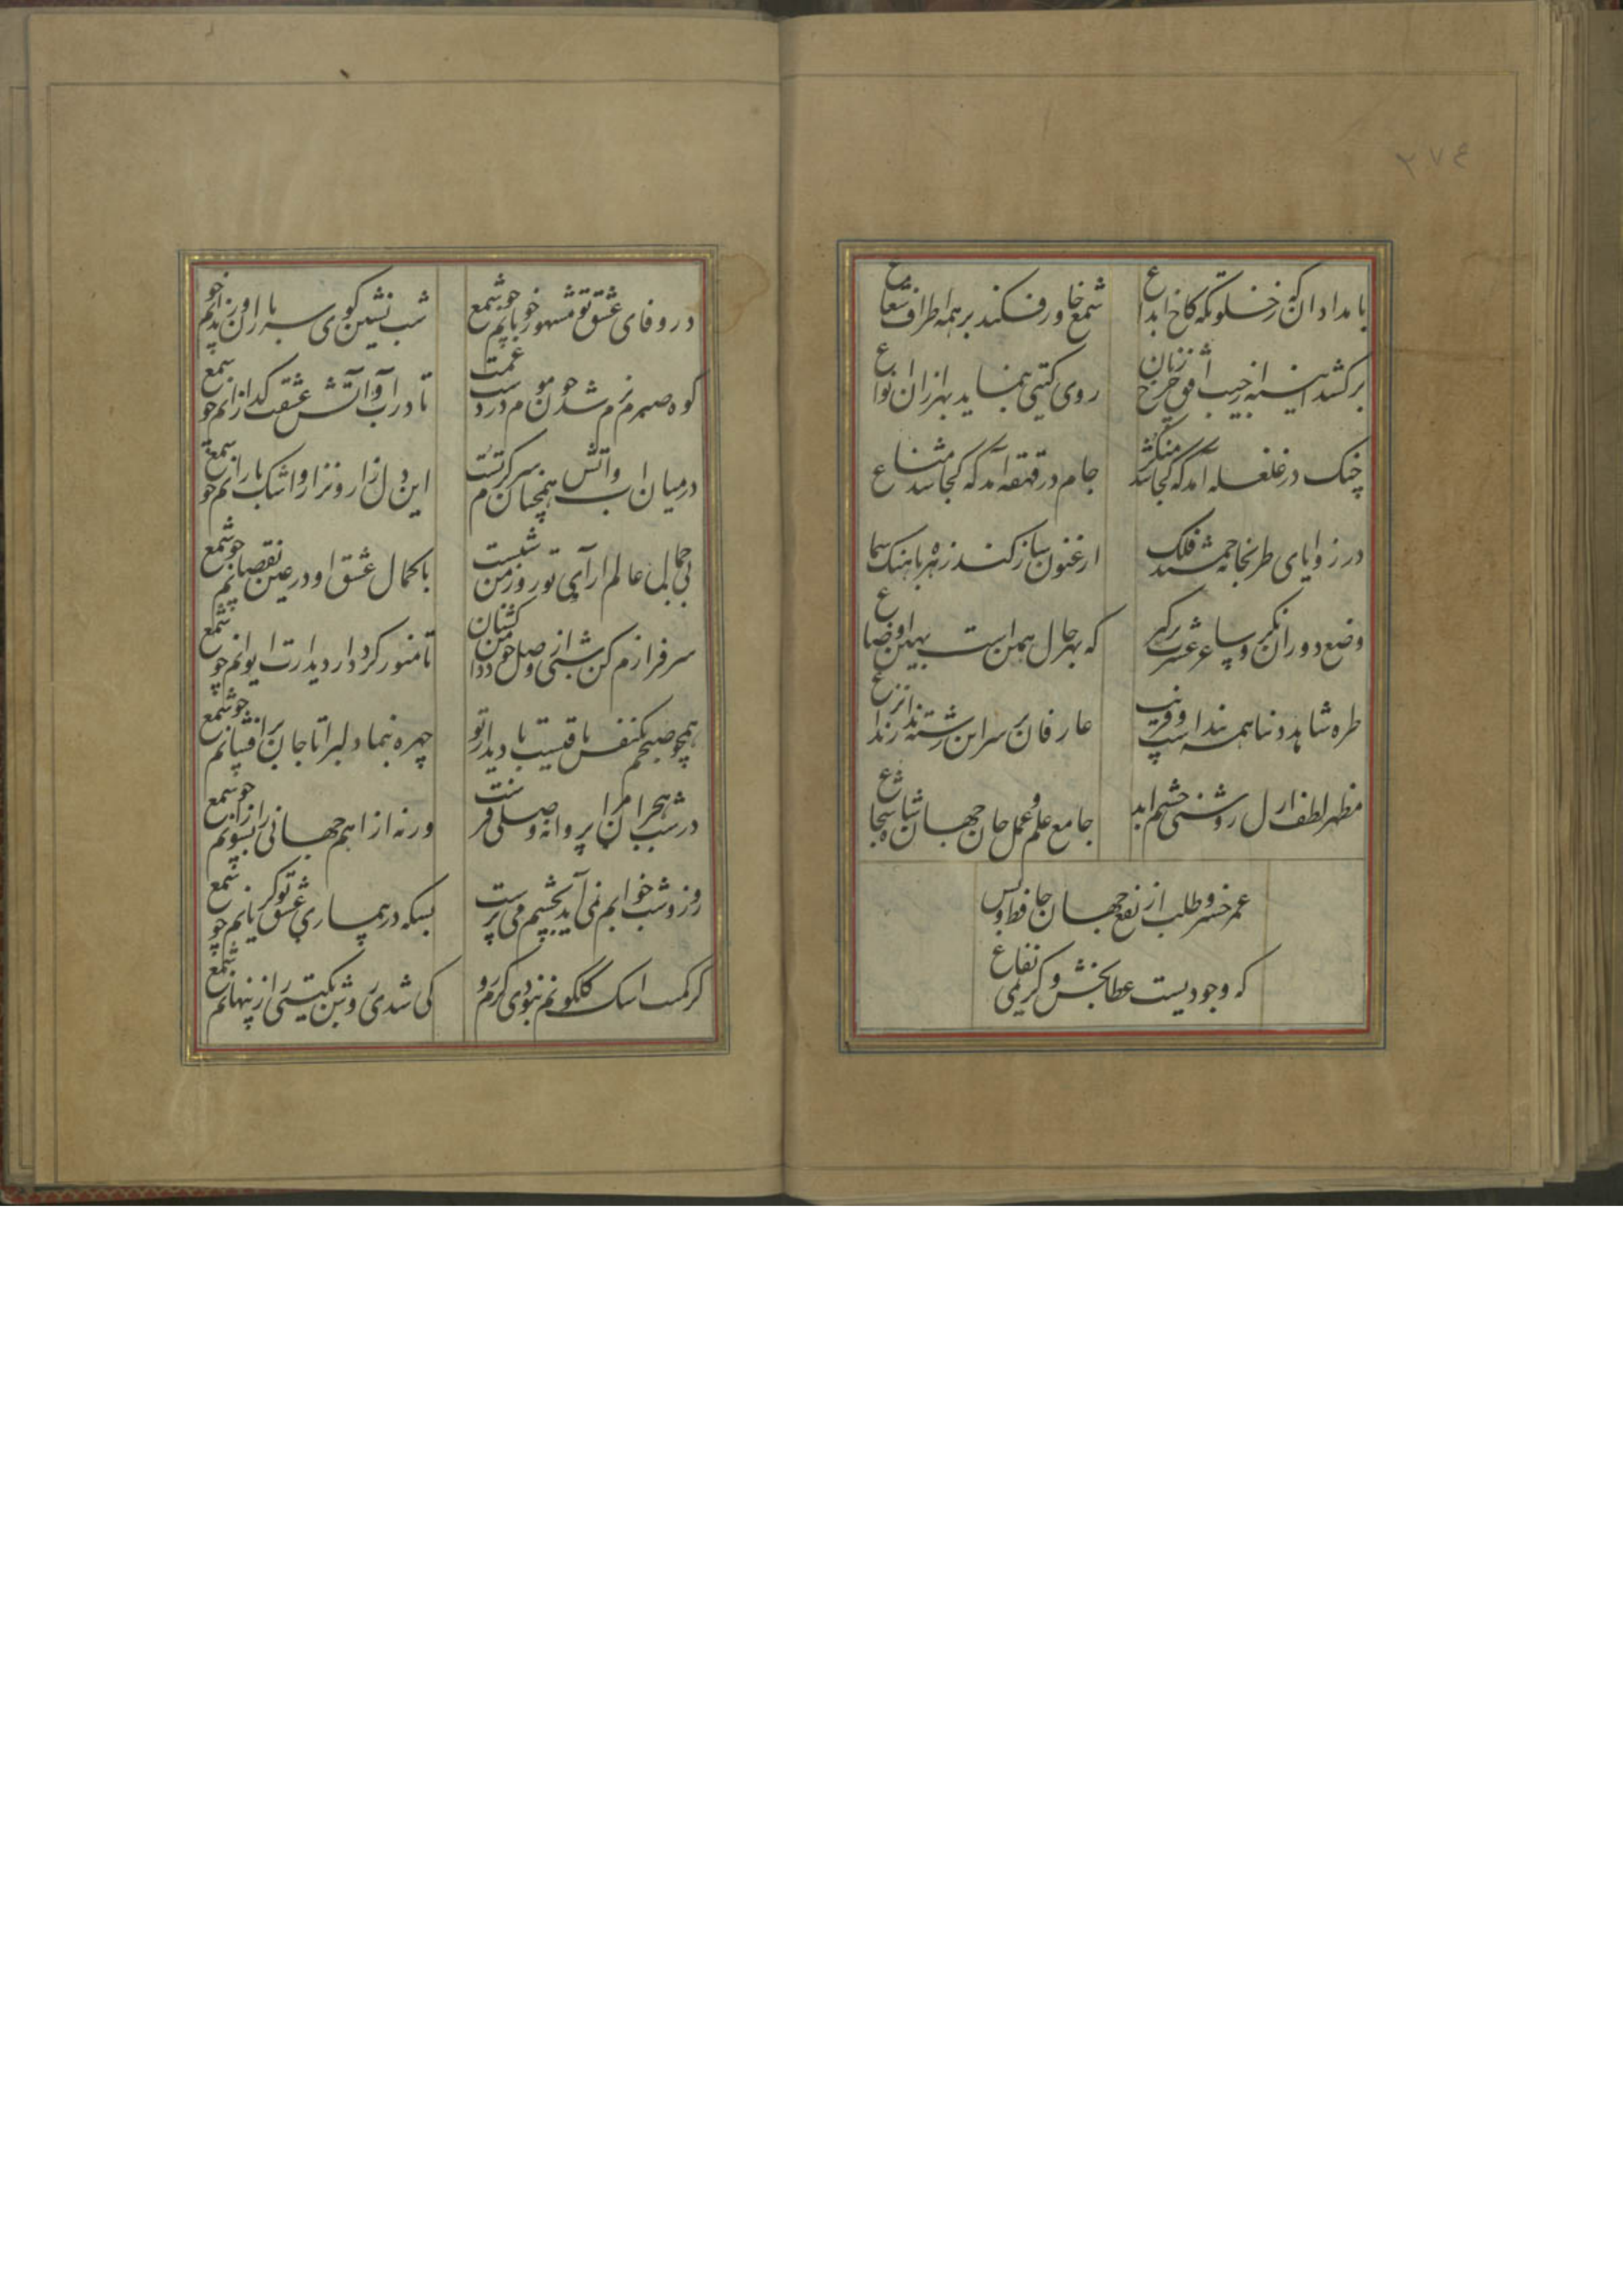 ۲۷٤
بامدادان که ز خلوتگه کاخ ابداع شمع خاور فکند بر همه اطراف شعاع
برکشد آینه از جیب افق چرخ زنان روی گیتی بنماید بهزاران انواع
چنگ در غلغله آمد که کجا شد منکر جام در قهقه آمد که کجا شد مناع
در زوایای طربخانه جمشید فلک ارغنون ساز کند زهره بآهنگ سماع
وضع دوران بنکر ساغر عشرت برکیر که بهر حال همین است بهین اوضاع
طره شاهد دنیا همه بندست و فریب عارفان بر سر این رشته ندانند نزاع
مظهر لطف ازل روشنی چشم ابد جامع علم و عمل جان جهان شاه شجاع
عمر خسرو طلب از نفع جهان حافظ وبس
که وجودیست عطابخش و کریمی نفاع
در وفای عشق تو مشهور خوبانم چو شمع شب نشین کوی سربازان و رندانم چو شمع
کوه صبرم نرم شد چون موم در دست غمت تا در آب و آتش عشقت گدازانم چو شمع
درمیان آب و آتش همچنان سرگرم تست این دل زار و نزار و اشک بارانم چو شمع
بی جمال عالم آرای تو روزم چون شبست با کمال عشق او در عین نقصانم چو شمع
سرفرازم کن شبی از وصل خود دامن کشان تا منور گردد از دیدارت ایوانم چو شمع
همچو صبحم یک نفس باقیست با دیدار تو چهره بنما دلبرا تا جان برافشانم چو شمع
در شب هجران مرا پروانه وصلی فرست ورنه از آهم جهانی را بسوزانم چو شمع
روز و شب خوابم نمی آید بچشم می پرست بسکه در بیماری عشق تو گریانم چو شمع
گر کمیت اشک گلگونم نبودی گرم رو کی شدی روشن بگیتی راز پنهانم چو شمع